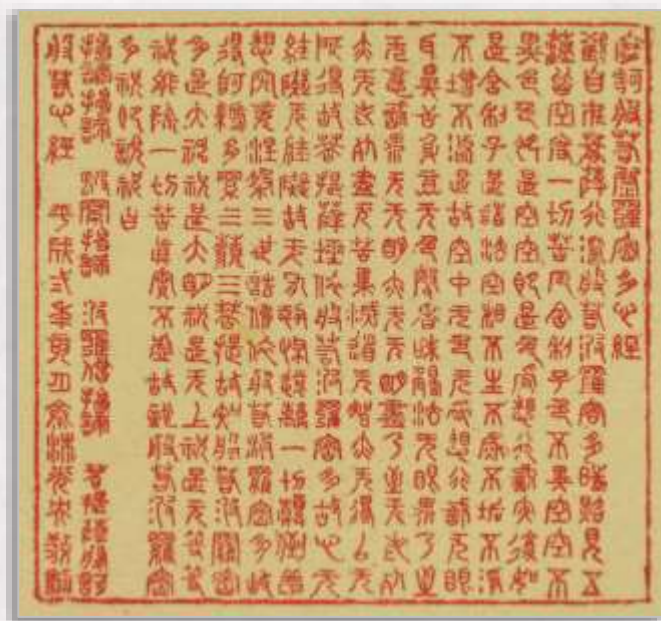 摩訶般若波羅蜜多心經
觀自在菩薩行深般若波羅蜜多時照見五
蘊皆空度一切苦厄舍利子色不異空空不
異色色即是空空即是色受想行識亦復如
是舍利子是諸法空相不生不滅不垢不淨
不增不減是故空中无色无受想行識无眼
耳鼻舌身意无色聲香味觸法无眼界乃至
无意識界无无明亦无无明盡乃至无老死
亦无老死盡无苦集滅道无智亦无得以无
所得故菩提薩埵依般若波羅蜜多故心无
罣礙无罣礙故无有恐怖遠離一切顛倒夢
想究竟涅槃三世諸佛依般若波羅蜜多故
得阿耨多羅三藐三菩提故知般若波羅蜜
多是大神咒是大明咒是无上咒是无等等
咒能除一切苦真實不虛故說般若波羅蜜
多咒即說咒曰
揭諦揭諦 波羅揭諦 波羅僧揭諦 菩提薩婆訶
般若心經 平成弍年